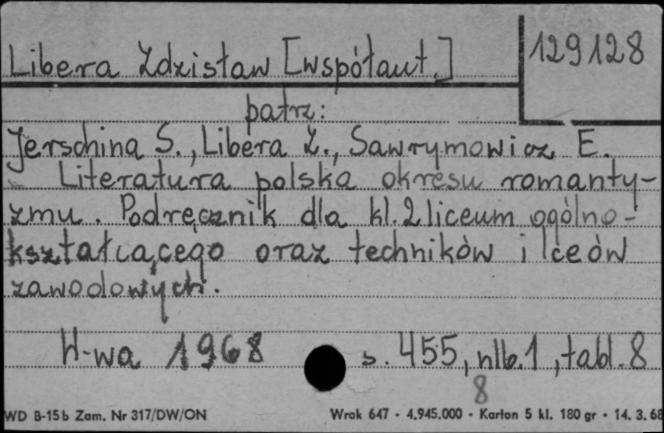 Libera Zdzisław [współaut.]
129128
patrz:
Jerschina S., Libera Z., Sawrymowicz E.
Literatura polska okresu romanty-
zmu. Podręcznik dla kl. 2 liceum ogólno-
kształcącego oraz techników i liceów
zawodowych.
W-wa 1968 s. 455, nlb. 1, tabl. 8
8
WD B-15b Zam. Nr 317/DW/ON Wrak 647 - 4.945.000 - Karton 5 kl. 180 gr - 14. 3. 68